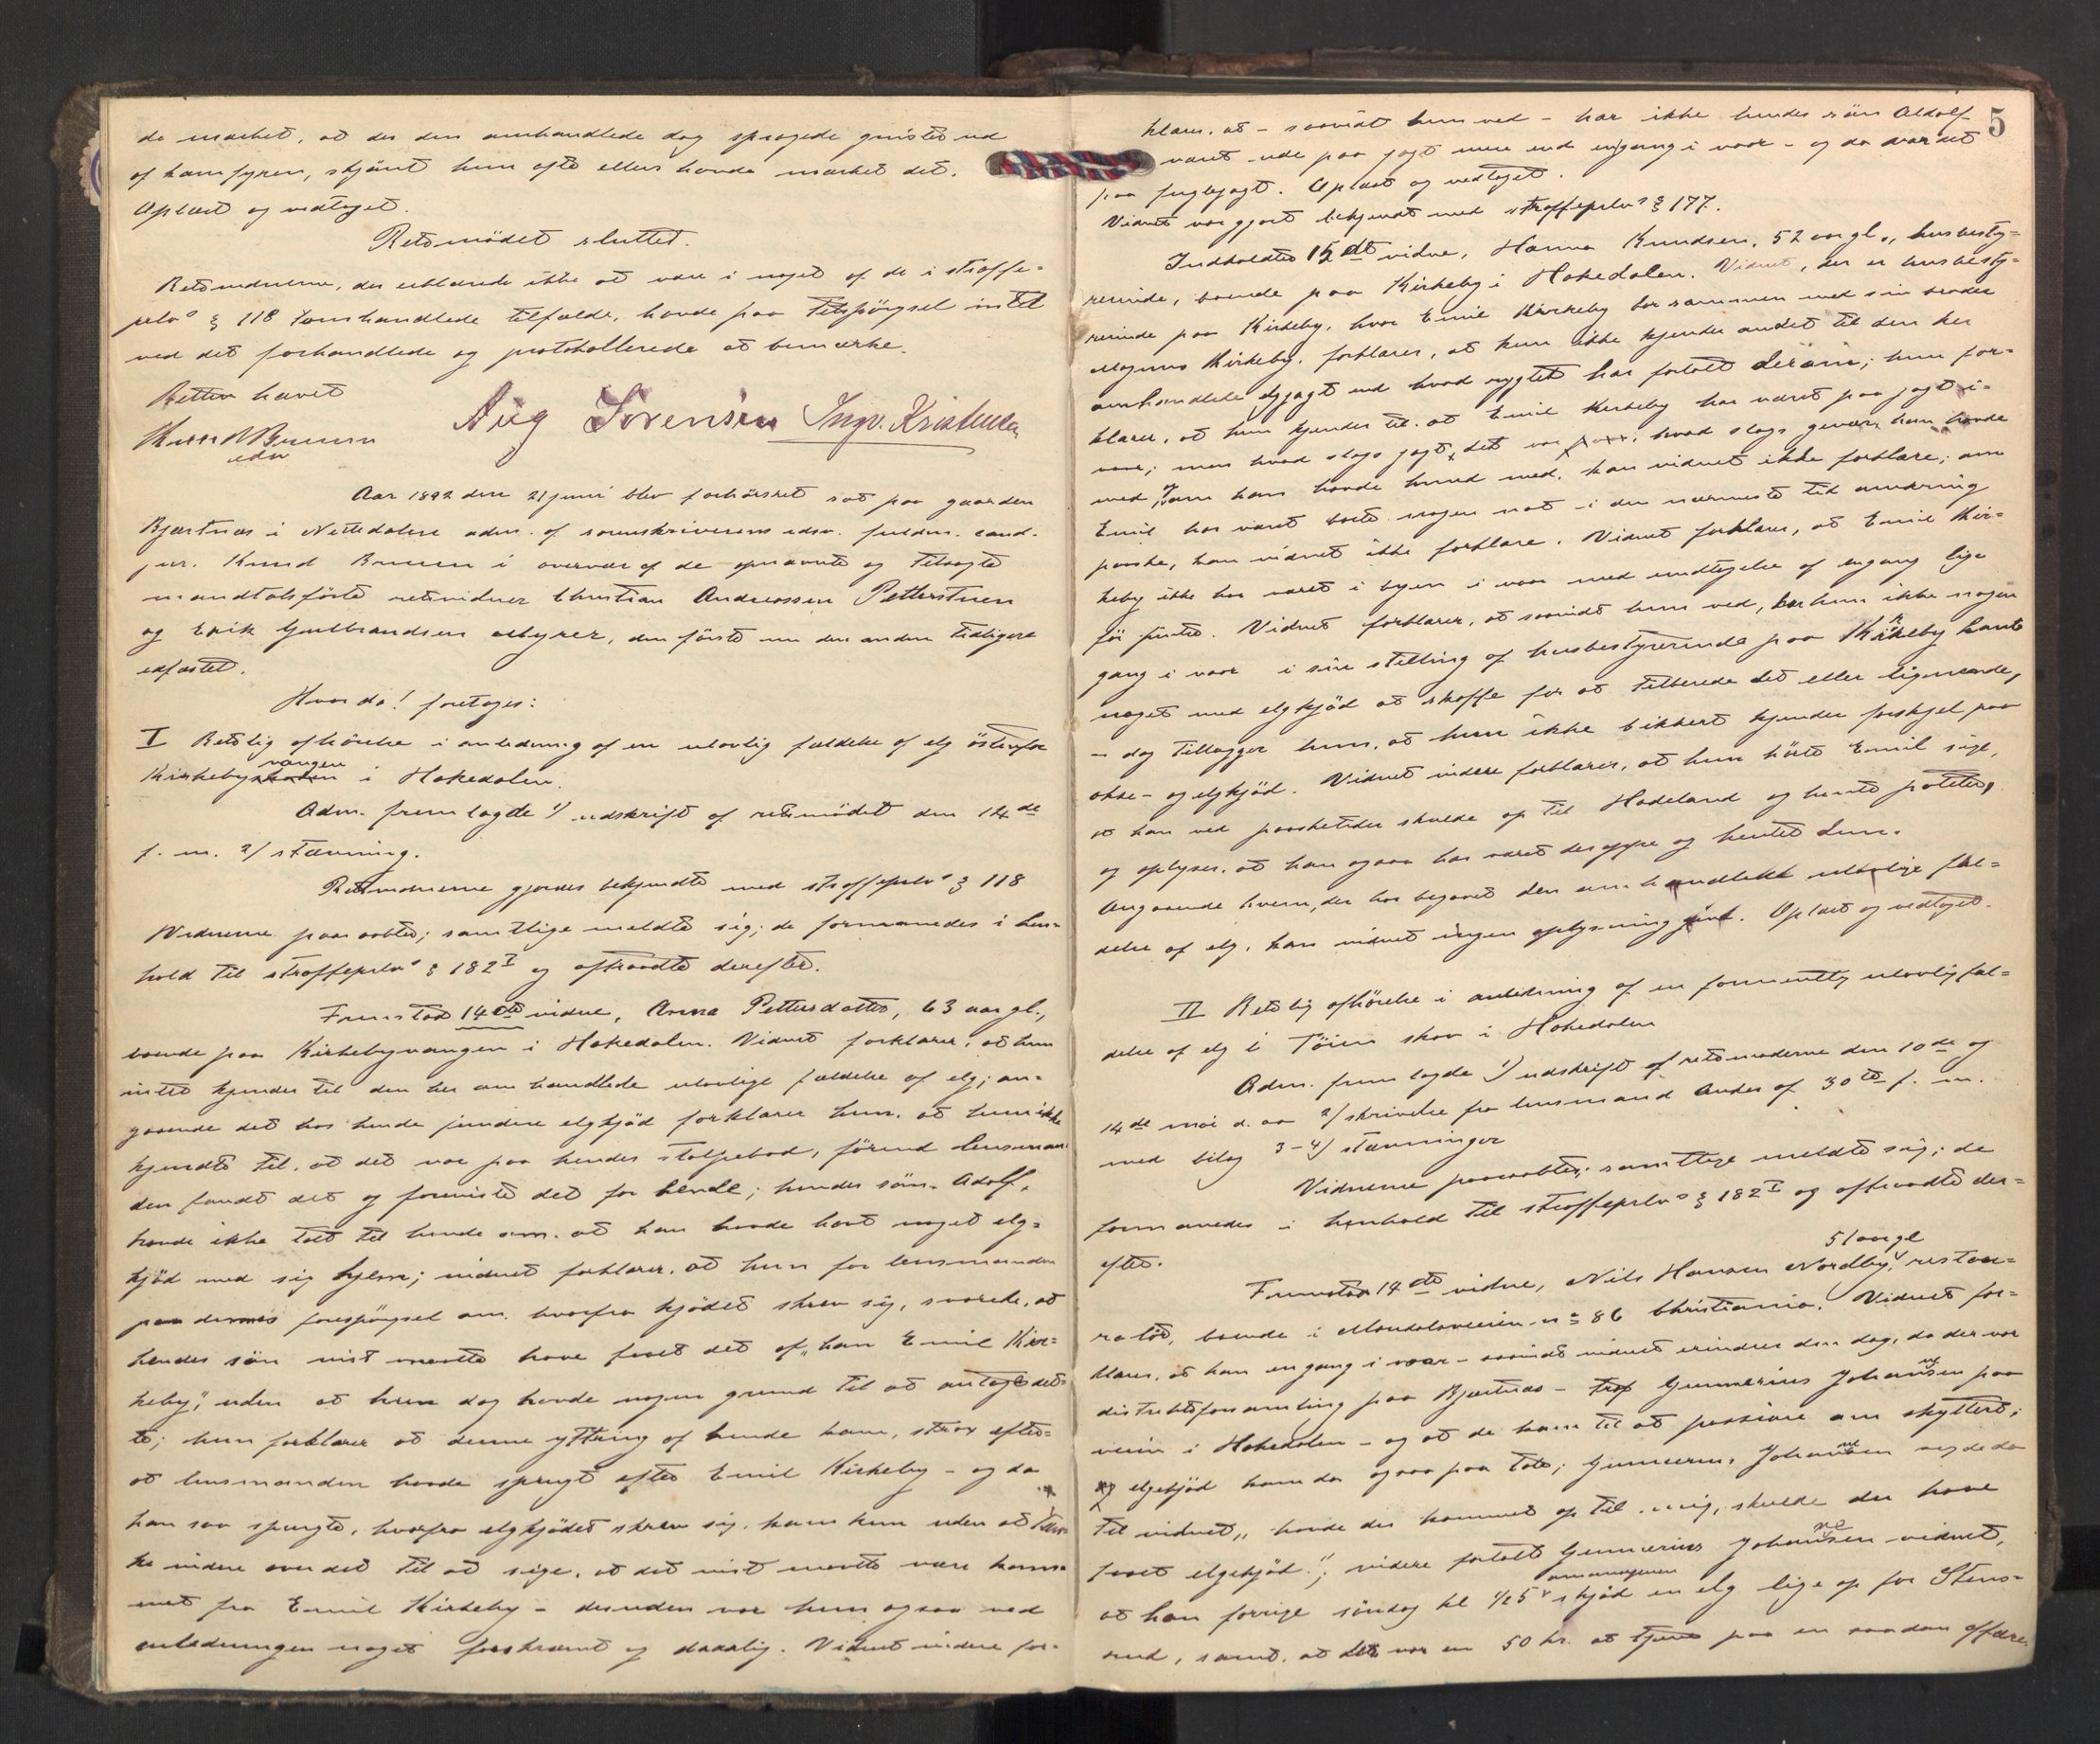 de mærket, at der den omhandlede dag spragede gnister ud
af kamfyren, skjønt hun ofte ellers havde mærket det.
Oplæst og vedtaget.
Retsmödet sluttet.
Retsvidnerne, der erklærede ikke at være i noget af de i straffe-
prlvs § 118 omhandlede tilfælde, havde paa tilspörgsel intet
ved det forhandlede og protokollerede at bemærke.
Retten hævet
Knud Bruun
edsv
Aug Sorensen Ingv. Kristensen
Aar 1892 den 21 juni blev forhörsret sat paa gaarden
Bjertnæs i Nittedalen adm. af sorenskriverens edsv. fuldm. cand.
jur. Knud Bruun i overvær af de opnævnte og tilsagte
mandtalsförte retsvidner Christian Andreassen Petterstuen
og Erik Gulbrandsen, den förste nu den anden tidligere
edfæstet.
Hvor da! foretoges:
I Retslig afhörelse i anledning af en ulovlig fældelse af elg östenfor
Kirkebyvangen i Hakedalen.
Adm. fremlagde 1) udskrift af retsmödet den 14de
f. m. 2) stævning.
Retsvidnerne gjordes bekjendte med straffeprlvs § 118
Vidnerne paaraabtes; samtlige meldte sig; de formanedes i hen-
hold til straffeprlvs § 182 I og aftraadte derefter.
Fremstod 14de vidne, Anna Pettersdatter, 63 aar gl.,
boende paa Kirkebyvangen i Hakedalen. Vidnet forklarer, at hun
intet kjender til den her omhandlede ulovlige fældelse af elg; an-
gaaende det hos hende fundne elgkjöd forklarer hun, at hun ikke
kjendte til, at det var paa hendes stolpebod, förend lensman
den fandt det og foreviste det for hende; hendes sön, Adolf,
havde ikke talt til hende om, at han havde havt noget elg-
kjöd med sig hjem; vidnet forklarer, at hun for lensmanden
paa dennes forespörgsel om, hvorfra kjödet skrev sig, svarede, at
hendes sön vist maatte have faaet det af „han Emil Kir-
keby", uden at hun dog havde nogen grund til at antage det-
te; hun forklarer at denne yttring af hende kom, strax efter-
at lensmanden havde spurgt efter Emil Kirkeby – og da
han saa spurgte, hvorfra elgkjödet skrev sig, kom hun uden at tæn-
ke videre over det til at sige, at det vist maatte være kom-
met fra Emil Kirkeby – desuden var hun ogsaa ved
anledningen noget forskræmt og daarlig. Vidnet videre for-
5
klarer, at – saavidt hun ved – har ikke hendes sön Adolf
været ude paa jagt mere end engang i vaar – og da var det
paa fuglejagt. Oplæst og vedtaget.
Vidnet var gjort bekjendt med straffeprlvs § 177.
Indkaldtes 15de vidne, Hanna Knudsen, 52 aar gl., husbesty-
rerinde, boende paa Kirkeby i Hakedalen. Vidnet, der er husbesty-
rerinde paa Kirkeby, hvor Emil Kirkeby bor sammen med sin broder
Magnus Kirkeby, forklarer, at hun ikke kjender andet til den her
omhandlede elgjagt end hvad rygtet har fortalt derom; hun for-
klarer, at hun kjender til, at Emil Kirkeby har været paa jagt i
vaar; men hvad slags jagt det var, hvad slags gevær han havde
med, og om han havde hund med, kan vidnet ikke forklare; om
Emil har været borte nogen nat i den nærmeste tid omkring
paaske, kan vidnet ikke forklare. Vidnet forklarer, at Emil Kir-
keby ikke har været i byen i vaar med undtagelse af engang lige
för pintse. Vidnet forklarer, at saavidt hun ved, har hun ikke nogen
gang i vaar i sin stilling af husbestyrerinde paa Kirkeby havt
noget med elgkjöd at skaffe for at tilberede det eller lignende,
– dog tillægger hun, at hun ikke sikkert kjender forskjel paa
okse- og elgkjöd. Vidnet videre forklarer, at hun hörte Emil sige,
at han ved paasketider skulde op til Hadeland og hente poteter,
og oplyser, at han ogsaa har været deroppe og hentet dem.
Angaaende hvem, der har begaaet den omhandlede ulovlige fæl-
delse af elg, kan vidnet ingen oplysning give. Oplæst og vedtaget.
II Retslig afhörelse i anledning af en formentlig ulovlig fæl-
delse af elg i Töien skov i Hakedalen
Adm. fremlagde 1) udskrift af retsmöderne den 10de og
14de mai d. aa 2) skrivelse fra lensmand Andes af 30te f. m.
med bilag 3-4) stævninger
Vidnerne paaraabtes; samtlige meldte sig; de
formanedes i henhold til straffeprlvs § 182 I og aftraadte der-
efter.
Fremstod 14de vidne, Nils Hansen Nordby, 51 aar gl restau-
ratör, boende i Maridalsveien no 86 Christiania. Vidnet for-
klarer, at han engang i vaar – saavidt vidnet erindrer den dag, da der var
distriktsforsamling paa Bjertnæs – traf Gunnerius Johansen paa
veien i Hakedalen – og at de kom til at passiare om skytteri;
og elgkjöd kom da ogsaa paa tale; Gunnerius Johansen sagde da
til vidnet, „havde der kommet op til mig, skulde du have
faaet elgkjöd."; videre fortalt Gunnerius Johansen vidnet,
at han forrige söndag kl 1/2 5 om morgenen skjöd en elg lige op for Stens-
rud, samt, at der var en 50 kr. at tjene paa en saadan affære